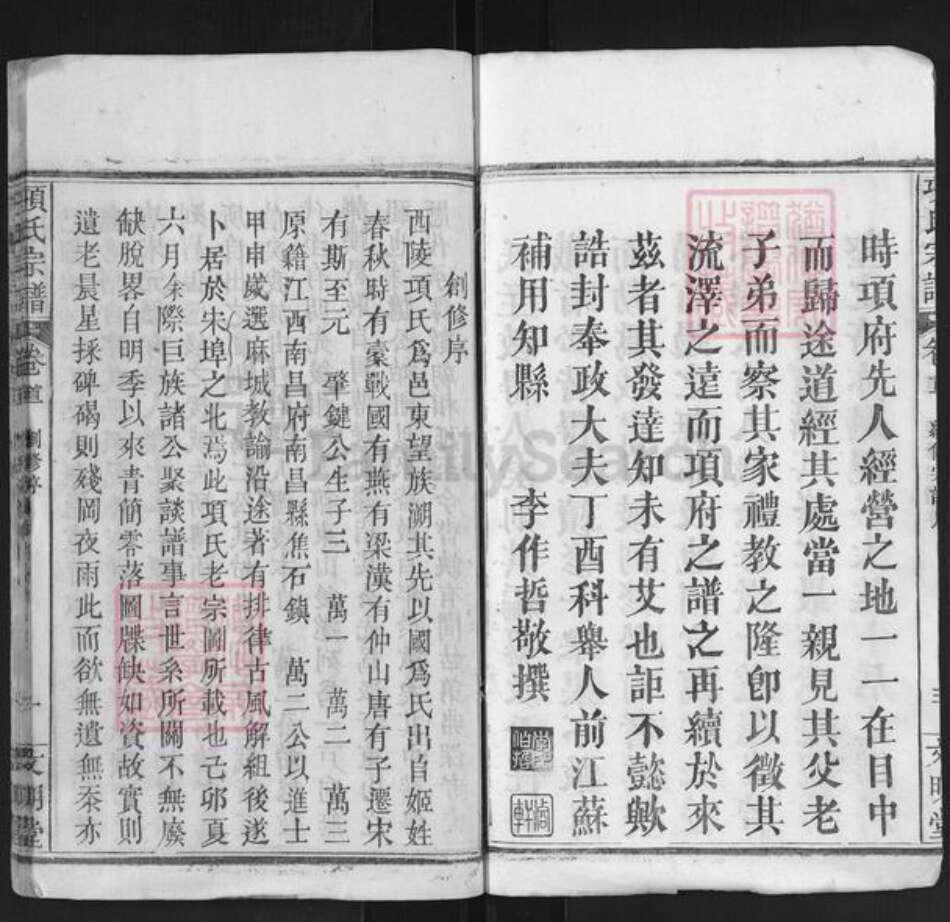 時項府先人經營之地一一在目中
而歸途道經其處當一親見其父老
子弟而察其家禮教之隆卽以徵其
流澤之逺而項府之譜之再續於來
茲者其發達知未有艾也詎不懿歟
誥封奉政大夫丁酉科舉人前江蘇
補用知縣 李作哲敬撰
項氏宗譜 卷首 創修序 一 文明堂
創修序
西陵項氏爲邑東望族溯其先以國爲氏出自姬姓
春秋時有豪戰國有燕有梁漢有仲山唐有子遷宋
有斯至元 肇鍵公生子三 萬一 萬二 萬三
原籍江西南昌府南昌縣焦石鎮 萬二公以進士
甲申嵗選麻城教諭沿途著有排律古風解組後遂
卜居於宋埠之北焉此項氏老宗圖所載也己邜夏
六月余際巨族諸公聚談譜事言世系所關不無廢
缺脫畧自明季以來青簡零落圖牒缺如資故實則
遺老晨星採碑碣則殘岡夜雨此而欲無遺無紊亦
FamilySearch